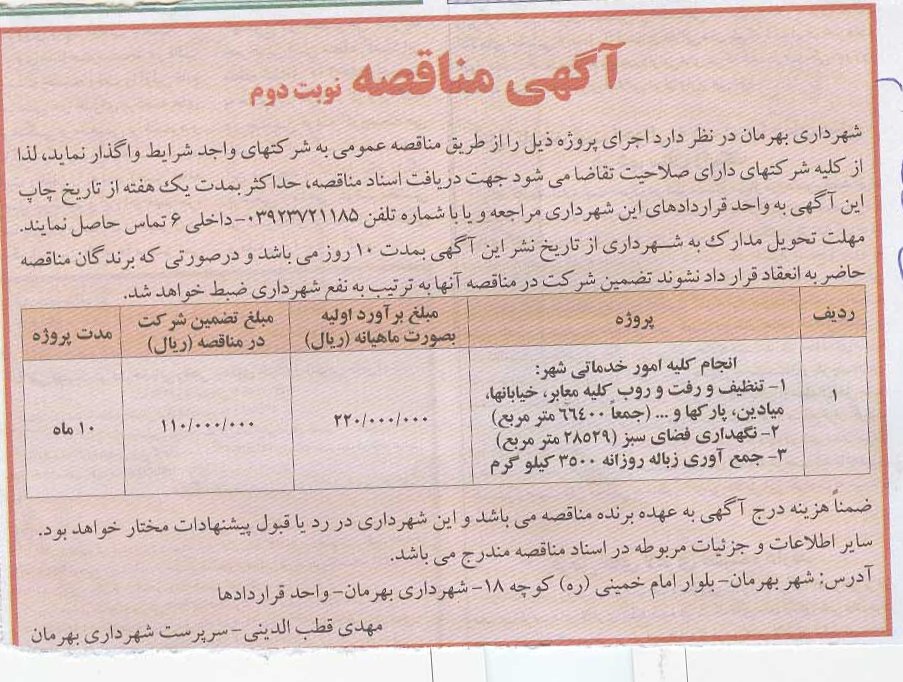 آگهی مناقصه نوبت دوم
شهرداری بهرمان در نظر دارد اجرای پروژه ذیل را از طریق مناقصه عمومی به شرکتهای واجد شرایط واگذار نماید، لذا
از کلیه شرکتهای دارای صلاحیت تقاضا می شود جهت دریافت اسناد مناقصه، حداکثر بمدت یک هفته از تاریخ چاپ
این آگهی به واحد قراردادهای این شهرداری مراجعه و یا با شماره تلفن ۰۳۹۲۳۷۲۱۱۸۵-داخلی ۶ تماس حاصل نمایند.
مهلت تحویل مدارک به شهرداری از تاریخ نشر این آگهی بمدت ۱۰ روز می باشد و درصورتی که برندگان مناقصه
حاضر به انعقاد قرار داد نشوند تضمین شرکت در مناقصه آنها به ترتیب به نفع شهرداری ضبط خواهد شد.
ردیف پروژه مبلغ برآورد اولیه بصورت ماهیانه (ریال) مبلغ تضمین شرکت در مناقصه (ریال) مدت پروژه
۱ انجام کلیه امور خدماتی شهر:
۱- تنظیف و رفت و روب کلیه معابر، خیابانها،
میادین، پارکها و ... (جمعاً ۶۶۴۰۰ متر مربع)
۲- نگهداری فضای سبز (۲۸۵۲۹ متر مربع)
۳- جمع آوری زباله روزانه ۳۵۰۰ کیلو گرم
۲۲۰/۰۰۰/۰۰۰ ۱۱۰/۰۰۰/۰۰۰ ۱۰ ماه
ضمناً هزینه درج آگهی به عهده برنده مناقصه می باشد و این شهرداری در رد یا قبول پیشنهادات مختار خواهد بود.
سایر اطلاعات و جزئیات مربوطه در اسناد مناقصه مندرج می باشد.
آدرس: شهر بهرمان-بلوار امام خمینی (ره) کوچه ۱۸-شهرداری بهرمان-واحد قراردادها
مهدی قطب الدینی-سرپرست شهرداری بهرمان